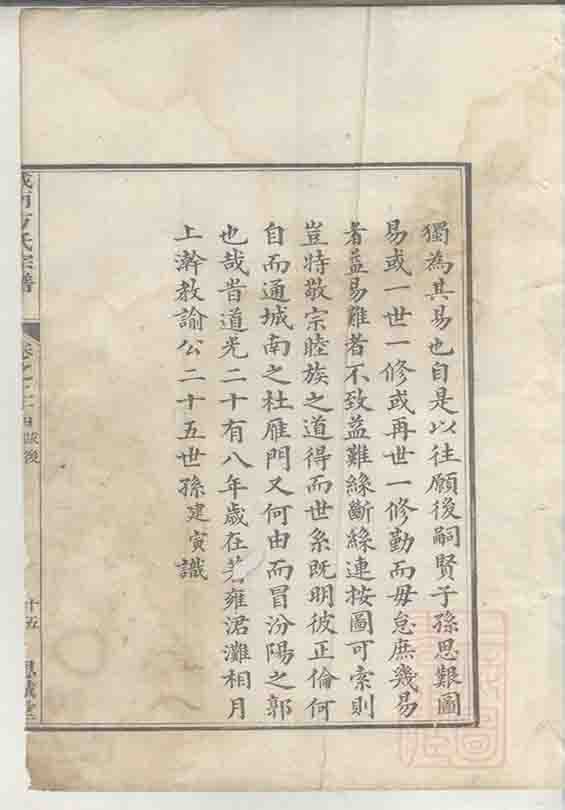 獨為其易也自是以往願後嗣賢子孫思艱圖
易或一世一修或再世一修勤而毋怠庶幾易
者益易難者不致益難緣斷緣連按圖可索則
豈特敬宗睦族之道得而世系既明彼正倫何
自而通城南之杜雁門又何由而冒汾陽之郭
也哉旹道光二十有八年歲在著雍涒灘相月
上澣教諭公二十五世孫建寅識
方氏宗譜
卷之二
跋後
十五